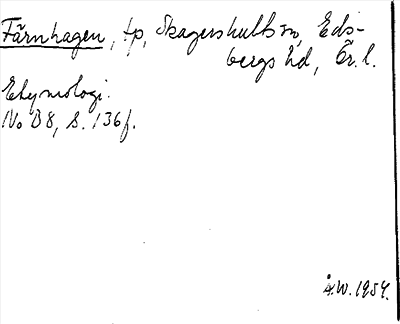 Färnhagen, tp, Skagershults sn, Eds-
bergs hd, Ör. l.
Etymologi.
No B 8, s. 136 f.
Å.W. 1954.